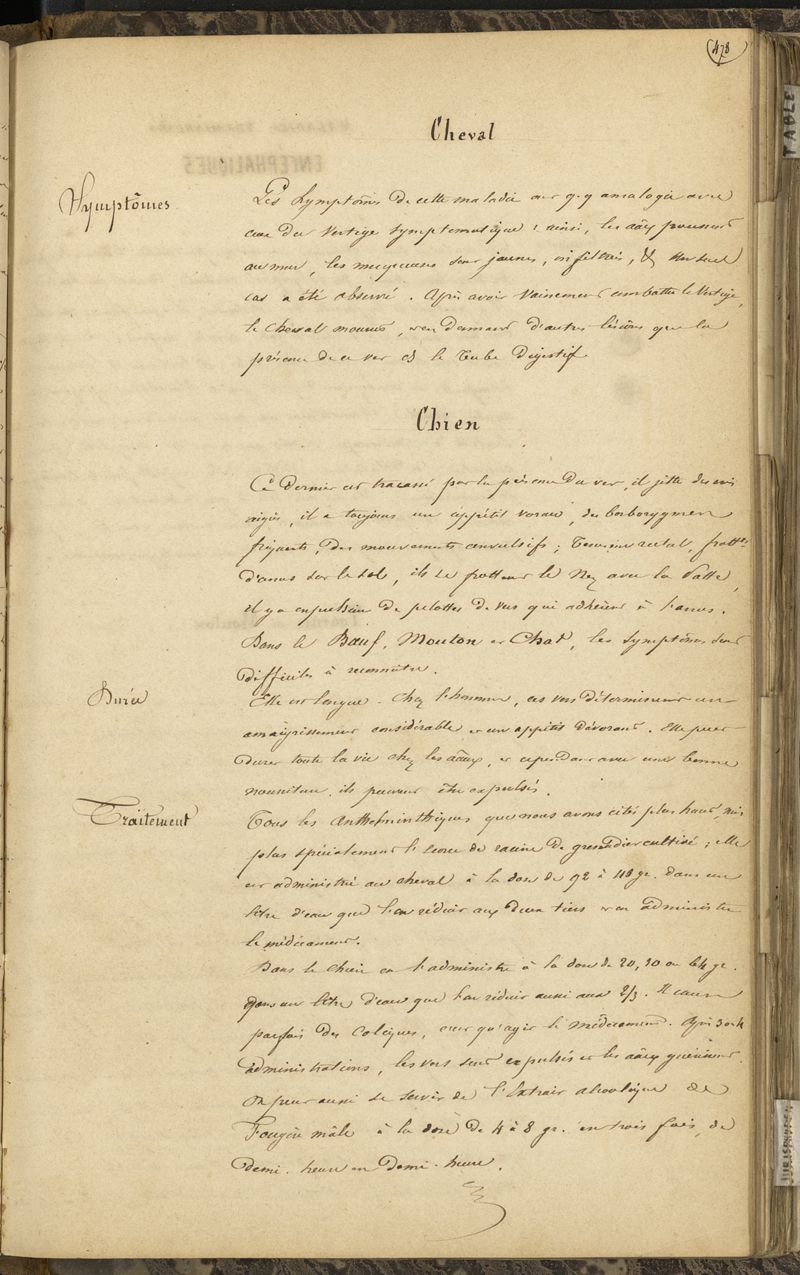 478
Cheval
Symptômes
Les Symptômes de cette maladie ont q.q analogie avec
ceux du Vertige symptomatique ; ainsi, les aâux poussent
au mur, les muqueuses sont jaunes, infiltrées, & un seul
cas a été observé. Après avoir vainement combattu le Vertige,
le cheval mourut, et en donnant d'autres lésions que la
présence de ce ver ds le Tube Digestif.
Chien
Ce dernier est tracassé par la présence du ver, il jette des cris
aigus, il a toujours un appétit vorace, des borborygmes
fréquents, des mouvements convulsifs ; frottem.
d'anus sur le sol, ils se frottent le Nez avec la Patte,
il y a expulsion de pelottes de vers qui adhèrent à l'anus.
Dans le Bœuf, Mouton et Chat, les symptômes sont
difficiles à reconnaître.
Durée
Elle est longue - Chez l'homme, ces vers déterminent un
amaigrissement considérable et un appétit dévorant. Elle peut
durer toute la vie chez les aâux, et cependant avec une bonne
nourriture, ils peuvent être expulsés.
Traitement
Tous les Anthelminthiques que nous avons cités plus haut, mais
plus spécialement l'écorce de racine de grenadier cultivé ; elle
est administré au cheval à la dose de 92 à 118 gr. dans un
litre d'eau que l'on réduit aux deux tiers et on administre
le médicament.
Dans le Chien on l'administre à la dose de 20, 30 ou 64 gr.
dans un litre d'eau que l'on réduit aussi aux 2/3. Il cause
parfois des coliques, c'est qu'agit le médicament. Après 3 ou 4
administrations, les vers sont expulsés et les aâux guérissent.
On peut aussi se servir de l'Extrait alcoolique de
Fougère mâle à la dose de 4 à 8 gr. en trois fois, de
demi-heure en demi-heure.
TABLE
JURISPRUDEN